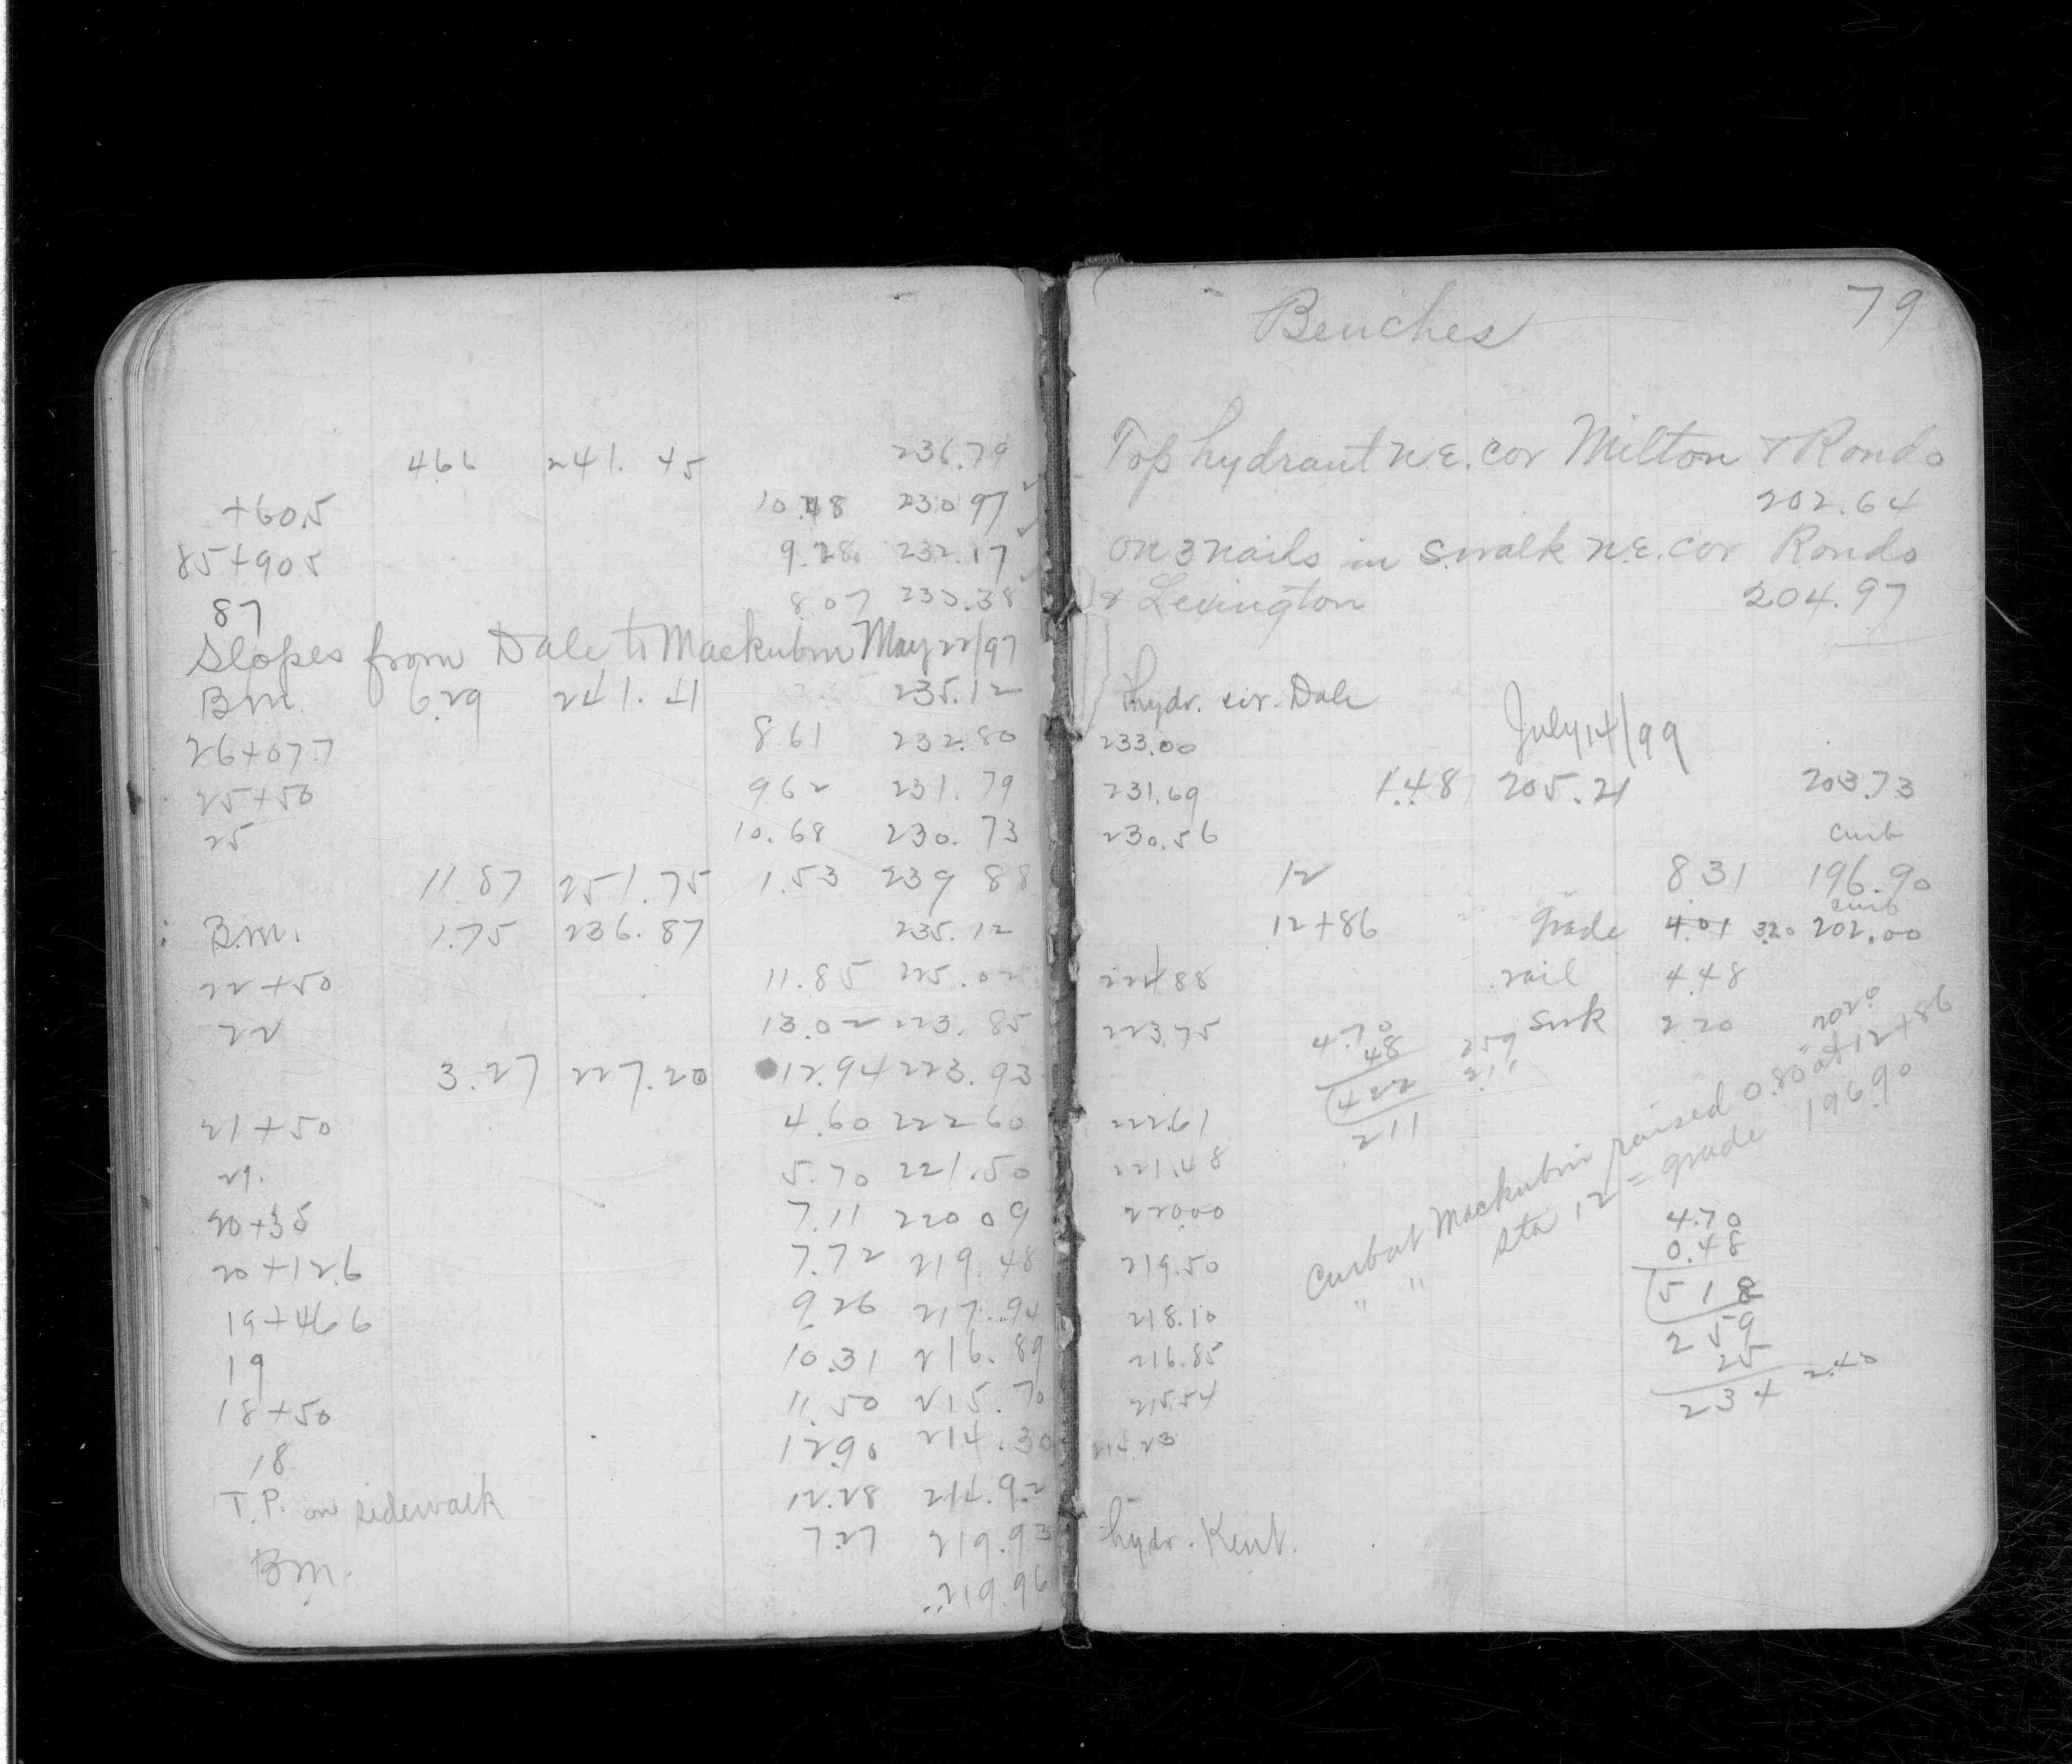 4.66 241.45 236.79
+60.5 10.48 230.97
85+90.5 9.28 232.17
87 8.07 233.38
Slopes from Dale to Mackubin May 22/97
B.M. 6.29 241.41 235.12
26+07.7 8.61 232.80
25+50 9.62 231.79
25 10.68 230.73
11.87 251.75 1.53 239.88
B.M. 1.75 236.87 235.12
22+50 11.85 225.02
22 13.02 223.85
3.27 227.20 12.94 223.93
21+50 4.60 222.60
21. 5.70 221.50
20+35 7.11 220.09
20+12.6 7.72 219.48
19+46.6 9.26 217.94
19 10.31 216.89
18+50 11.50 215.70
18 12.90 214.30
T.P. on sidewalk 12.28 214.92
B.M. 7.27 219.93
219.96
79
Benches
Top hydrant N.E. cor Milton & Rondo
202.64
on 3 nails in S.walk N.E. cor Rondo
& Lexington 204.97
hydr. cor. Dale
July 14/99
233.00
231.69 1.48 205.21 203.73
230.56 curb
12 8.31 196.90
curb
12+86 grade 4.01 3.20 202.00
224.88 rail 4.48
223.75 2.20
4.70
48
422
211
259
211
222.61
221.48
220.00
219.50
218.10
216.85
215.54
214.23
202.0
Curb at Mackubin raised 0.80 at 12+86
" " sta 12 = grade 196.90
4.70
0.48
518
259
25
234 2.40
hydr. Kent.